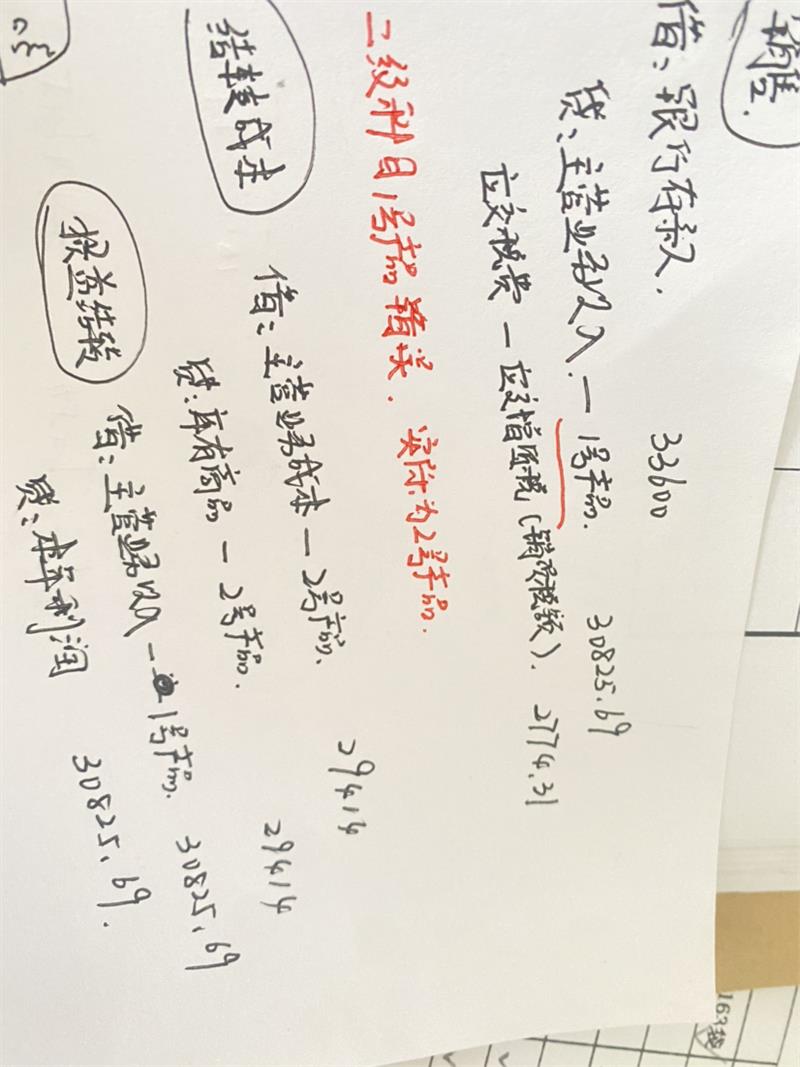 销售.
借：银行存款. 33600
贷：主营业务收入. — 1号产品. 30825.69
应交税费 — 应交增值税(销项税额). 2774.31
二级科目1号产品错误. 实际为2号产品.
结转成本
借：主营业务成本 — 2号产品. 29414
贷：库存商品 — 2号产品. 29414
损益结转
借：主营业务收入 — 1号产品. 30825.69
贷：本年利润 30825.69.
163